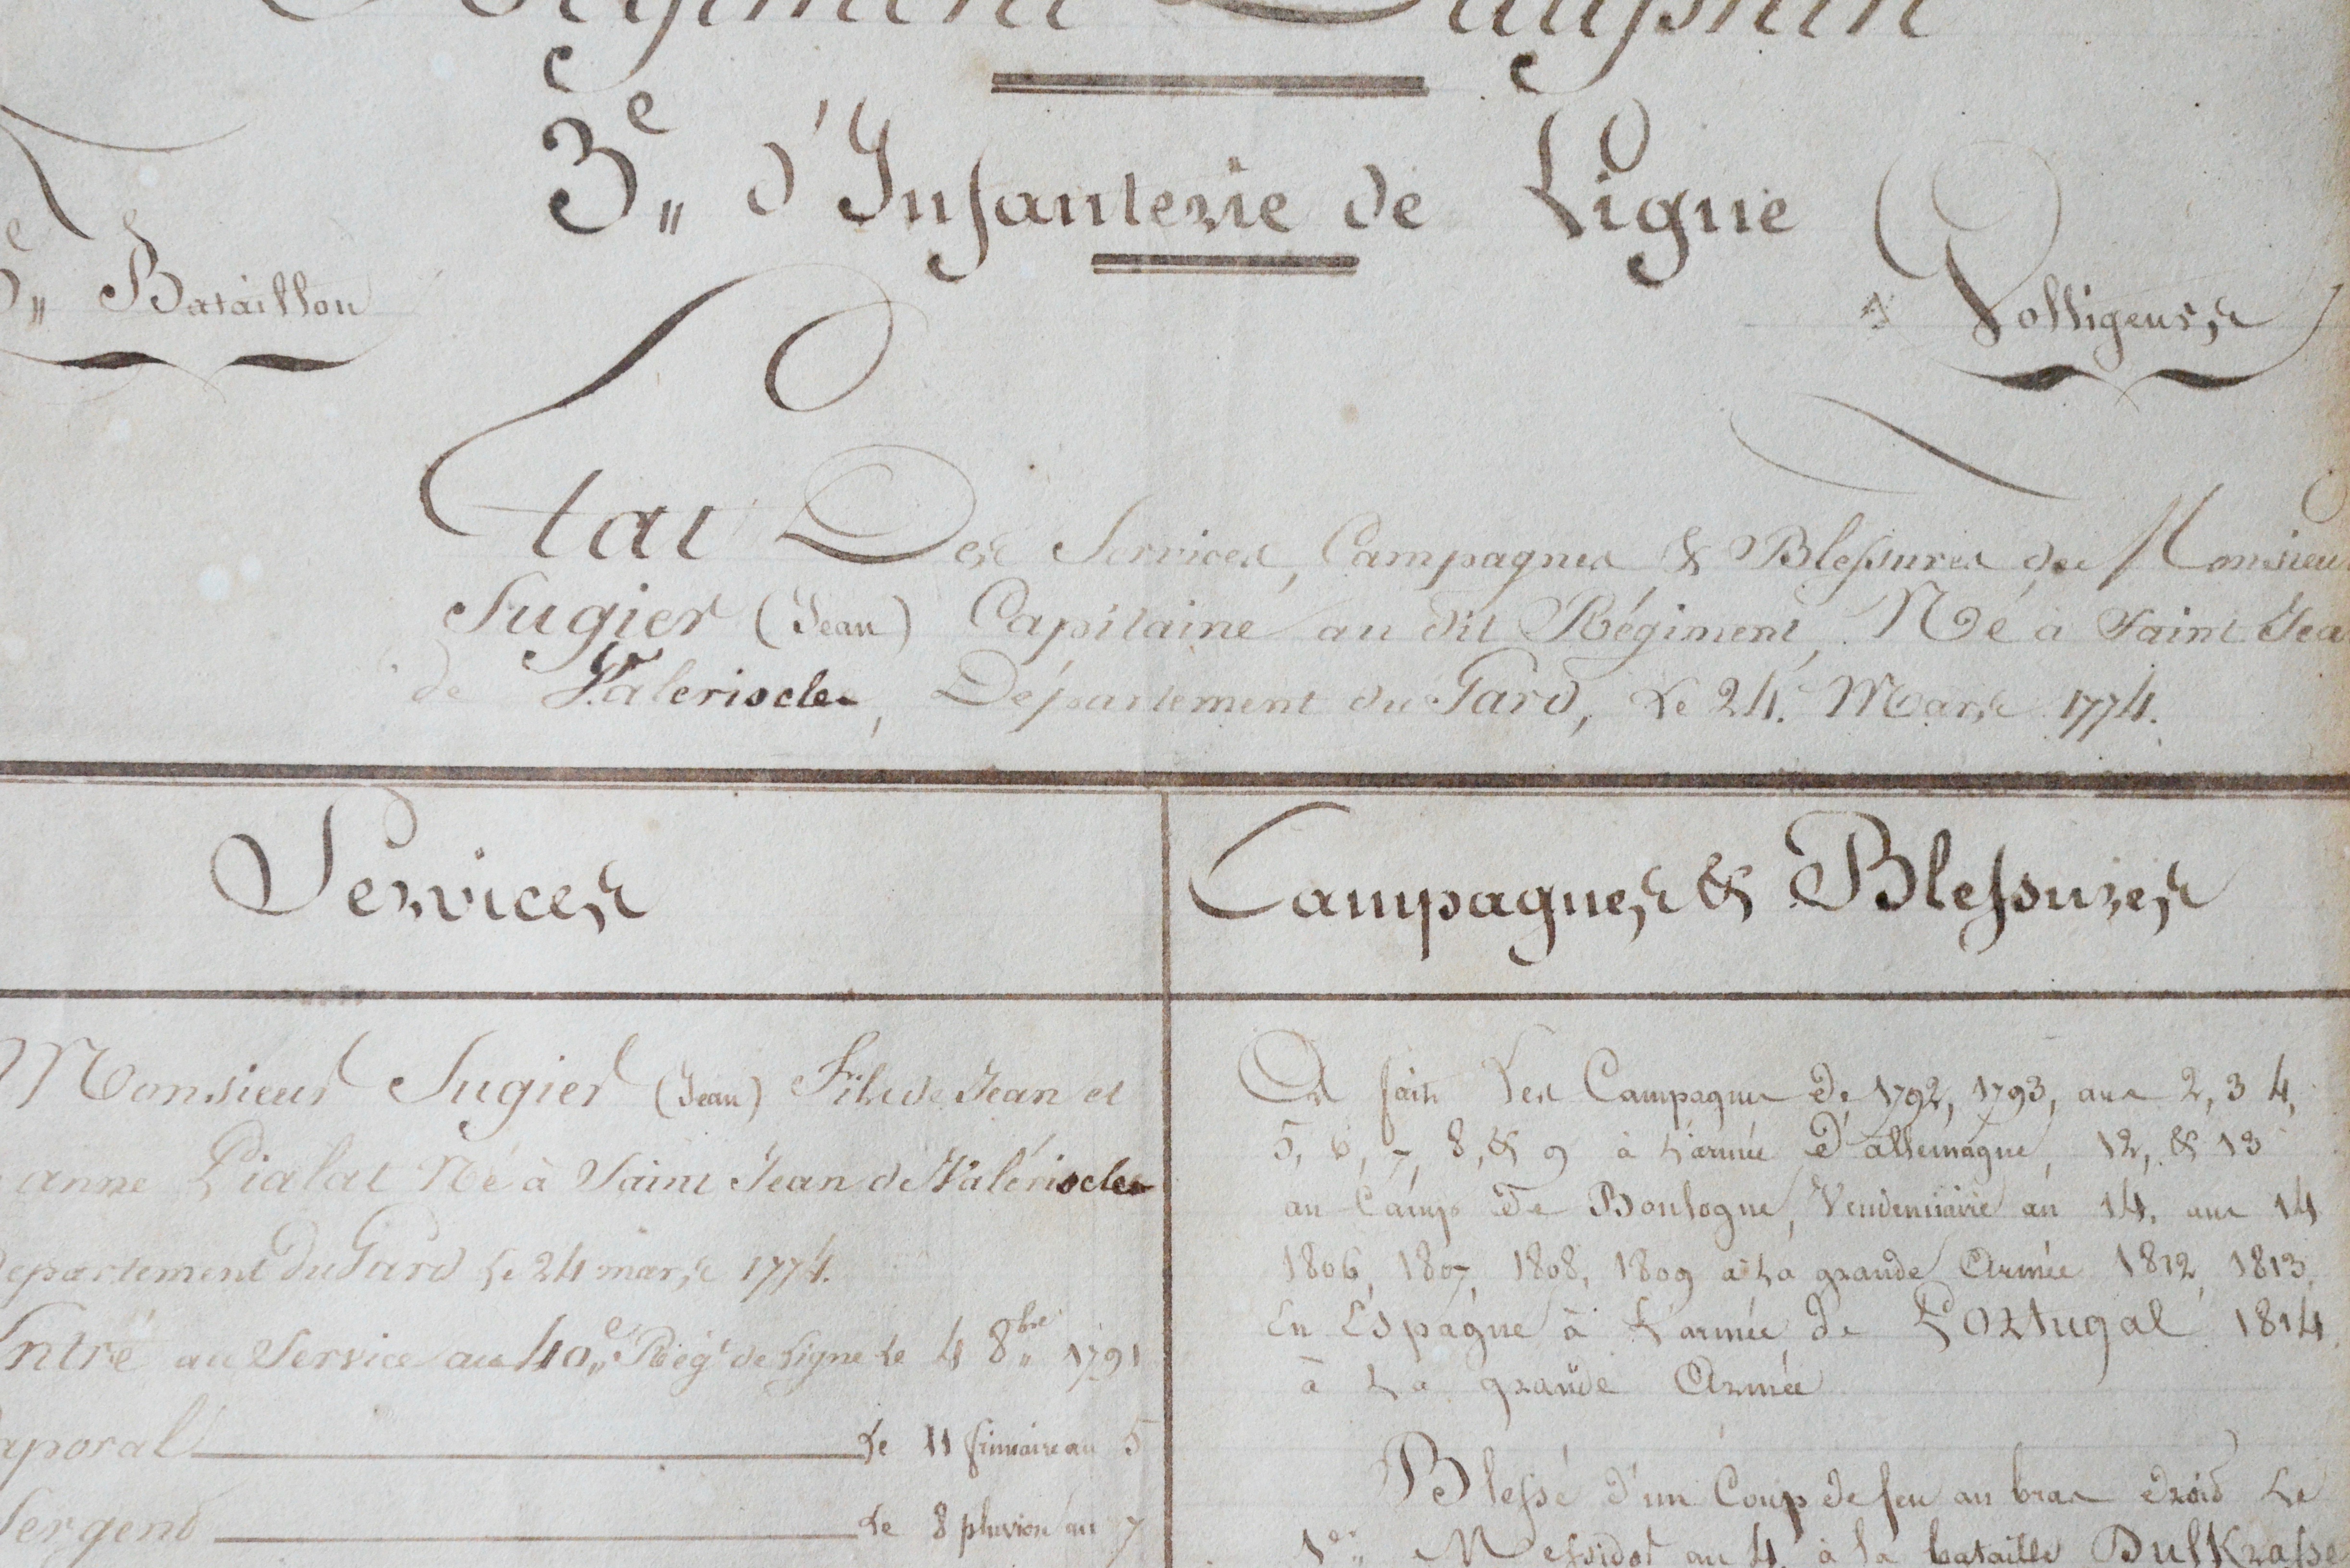 Régiment Dauphin
3e,, d'Infanterie de Ligne
e,, Bataillon
Voltigeurs
Etat Des Services, Campagnes & Blessures de Monsieur
Sugier (Jean) Capitaine au dit Régiment, Né à Saint Jea
de Valeriscle, Département du Gard, Le 24. Mars 1774.
Services
Campagnes & Blessures
Monsieur Sugier (Jean) Fils de Jean et
anne Pialat Né à Saint Jean de Valériscle
epartement du Gard Le 24 mars 1774.
Entré au Service au 40e,, Régt de Ligne Le 4 8bre,, 1791
aporal Le 11 frimaire an 5
Sergend Le 8 pluviose an 7
A fait Les Campagnes De 1792, 1793, ans 2, 3 4,
5, 6, 7, 8, & 9 à L'armée D'allemagne, 12, & 13
au Camp De Boulogne, Vendemiaire an 14. ans 14
1806, 1807, 1808, 1809 à La grande Armée 1812, 1813,
En Espagne à L'armée de Portugal 1814
à La grande Armée
Blessé d'un Coup De feu au bras Droid Le
1er,, Messidor an 4. à la bataille